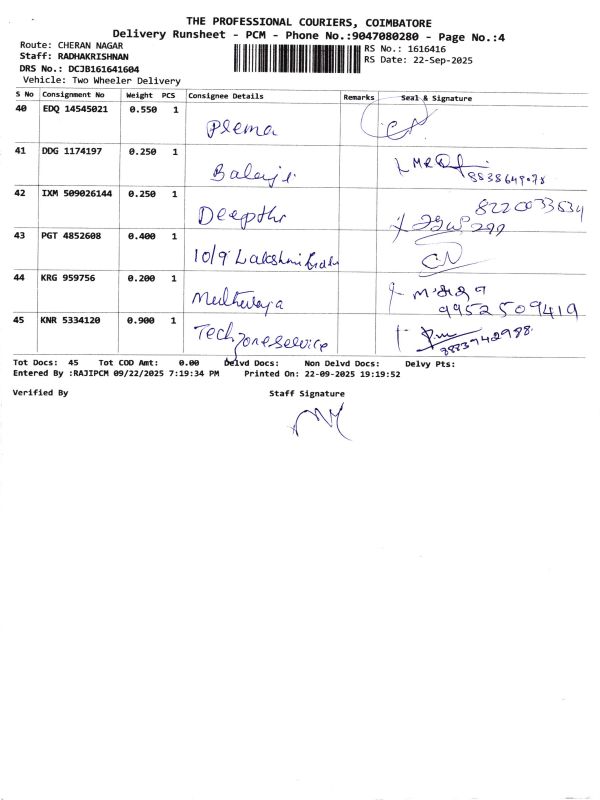 THE PROFESSIONAL COURIERS, COIMBATORE
Delivery Runsheet - PCM - Phone No.:9047080280 - Page No.:4
Route: CHERAN NAGAR
Staff: RADHAKRISHNAN
DRS No.: DCJB161641604
Vehicle: Two Wheeler Delivery
RS No.: 1616416
RS Date: 22-Sep-2025
S No Consignment No Weight PCS Consignee Details Remarks Seal & Signature
40 EDQ 14545021 0.550 1 Prema
41 DDG 1174197 0.250 1 Balaji
42 IXM 509026144 0.250 1 Deepthi
43 PGT 4852608 0.400 1 10/9 Lakshmi
44 KRG 959756 0.200 1 9952509419
45 KNR 5334120 0.900 1 Tech zone service
Tot Docs: 45 Tot COD Amt: 0.00 Delvd Docs: Non Delvd Docs: Delvy Pts:
Entered By :RAJIPCM 09/22/2025 7:19:34 PM Printed On: 22-09-2025 19:19:52
Verified By Staff Signature